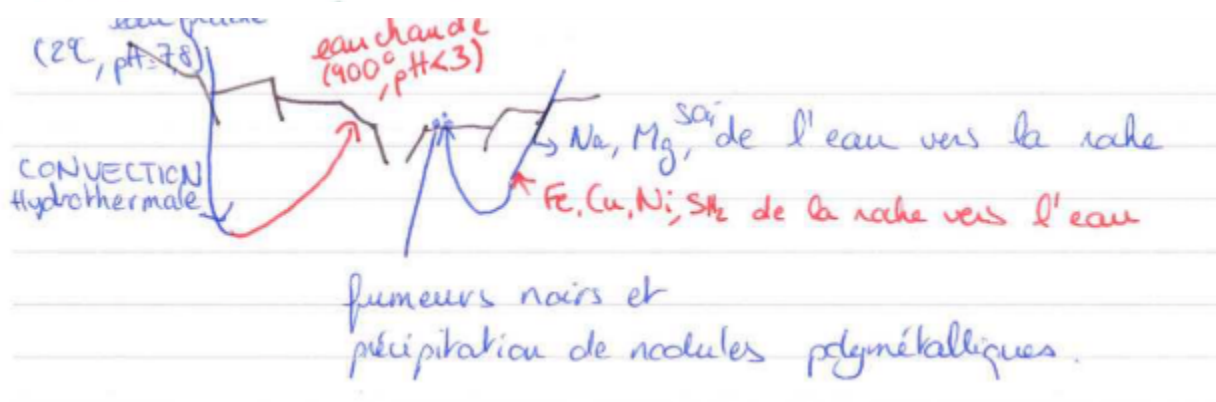 (2°C, pH=7,8)
eau chaude
(400°, pH<3)
CONVECTION
Hydrothermale
Na, Mg, de l'eau vers la roche
Fe, Cu, Ni, SH2 de la roche vers l'eau
fumeurs noirs et
précipitation de nodules polymétalliques.